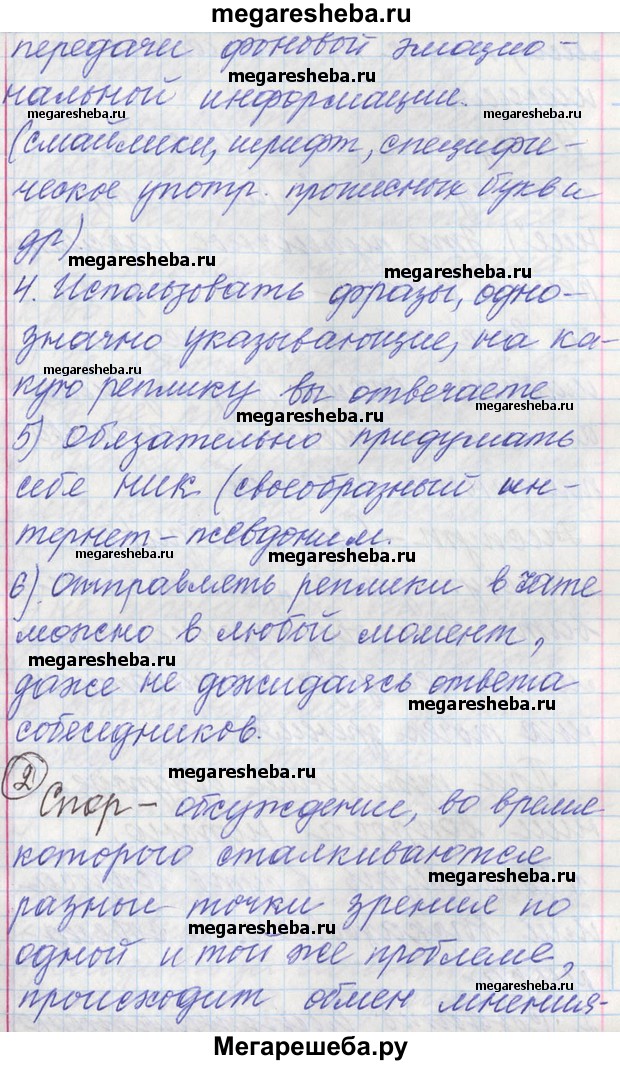 megaresheba.ru
передачи фоновый эмоцио-
megaresheba.ru
нальной информации.
megaresheba.ru
(смайлики, шрифт, специфи-
megaresheba.ru
ческое употр. прописных букв и
megaresheba.ru
др).
megaresheba.ru
megaresheba.ru
4. Использовать фразы, одно-
значно указывающие, на ка-
megaresheba.ru
кую реплику вы отвечаете
megaresheba.ru
megaresheba.ru
5) Обязательно придумать
себе ник (своеобразный ин-
megaresheba.ru
тернет-псевдоним.
megaresheba.ru
megaresheba.ru
6) Отправлять реплики в чате
можно в любой момент,
megaresheba.ru
даже не дожидаясь ответа
megaresheba.ru
собеседников.
megaresheba.ru
2 Спор - обсуждение, во время
которого сталкиваются
megaresheba.ru
разные точки зрения по
megaresheba.ru
одной и той же проблеме,
megaresheba.ru
происходит обмен мнения-
Мегарешеба.ру